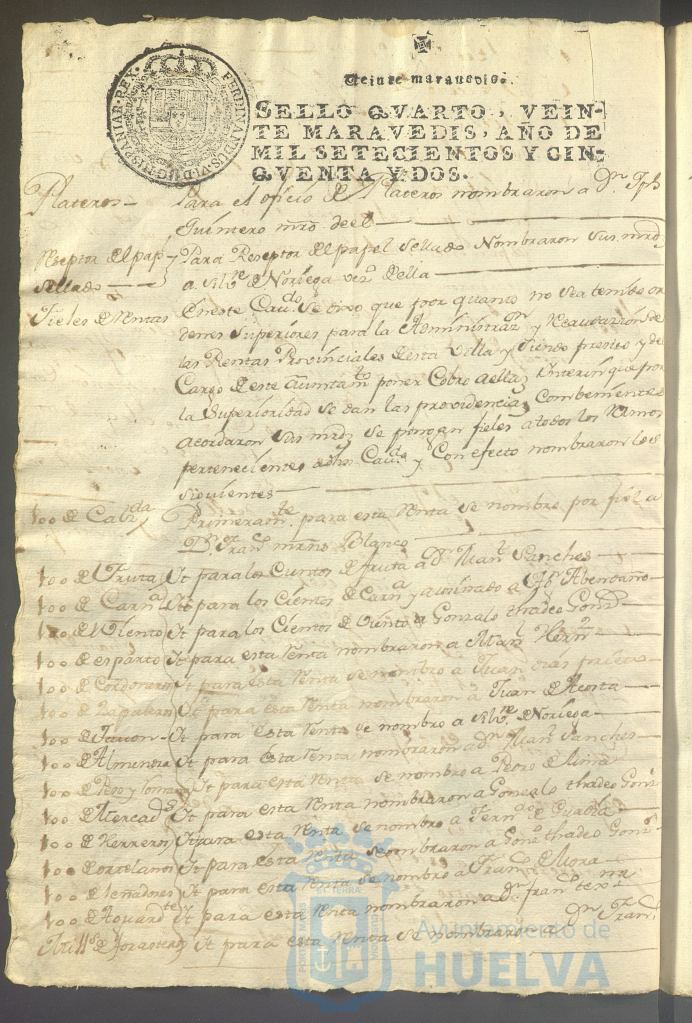 FERDINANDUS.VI.D.G.HISPANIAR.REX.
Veinte maravedis.
SELLO QVARTO, VEIN-
TE MARAVEDIS, AÑO DE
MIL SETECIENTOS Y CIN-
QVENTA Y DOS.
Plateros- Para el oficio de Plateros nombraron a Dn. Jph
Quintero mro. de el
Reseptor del pap. Para Reseptor del papel Sellado Nombraron sus mrds
sellado a Silve. de Noriega veso. della
Fieles de Rentas En este Cavdo. se dixo que por quanto no sea tenido or
denes Superiores para la Administrazon. y Recaudazion de
las Rentas Provinciales de esta Villa y siendo presiso y de
Cargo de este Ayuntamto. poner Cobro a ellas Interin que por
la Superioridad se dan las providencias Combenientes
acordaron sus mrds se pongan fieles a todos los Ramos
pertenecientes a dho Cavdo. y Con efecto nombraron los
siguientes
100 de Primeramte. para esta Renta se nombro por fiel a
Dn. Franco. Blanco
100 de Fruta It para los Cientos de fruta a Dn. Manl. Sanches
100 de Carna. It para los Cientos de Carna. y a Abendaño
100 del Viento It para los Cientos de Viento a Gonzalo thadeo Gonz
100 de esparto It para esta Renta nombraron a Hern
100 de Cordoneros It para esta Renta se nombro a Juan
100 de Zapateros It para esta Renta nombraron a Juan de Acosta
100 de It para esta Renta se nombro a Silve. de Noriega
100 de Almendra It para esta Renta nombraron a Dn. Manl. Sanches
100 de Peso y It para esta Renta se nombro a Pedro de
100 de Mercads It para esta Renta nombraron a Gonzalo thadeo Gonz
100 de Herreros It para esta Renta se nombro a Fern
100 de Ortelanos It para esta Renta nombraron a Gono. thadeo Gonz
100 de Leñadores It para esta Renta se nombro a Franco. de Mora
100 de Aguardte It para esta Renta nombraron a Dn. Franco.
de Forasteros It para esta Renta se nombraron a Dn. Fran
Ayuntamiento de
HUELVA